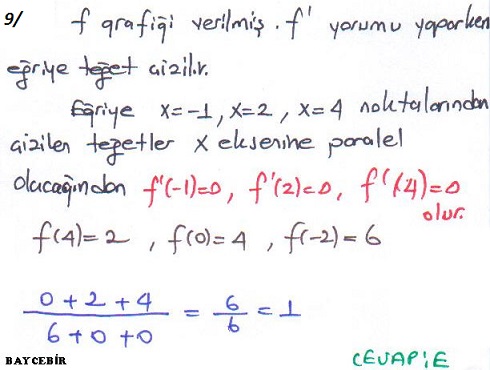 9/ f grafiği verilmiş. f' yorumu yaparken
eğriye teğet çizilir.
Eğriye x=-1, x=2, x=4 noktalarından
çizilen teğetler x eksenine paralel
olacağından f'(-1)=0, f'(2)=0, f'(4)=0
olur.
f(4)=2 , f(0)=4 , f(-2)=6
0+2+4 / 6+0+0 = 6/6 = 1
BAYCEBİR
CEVAP:E